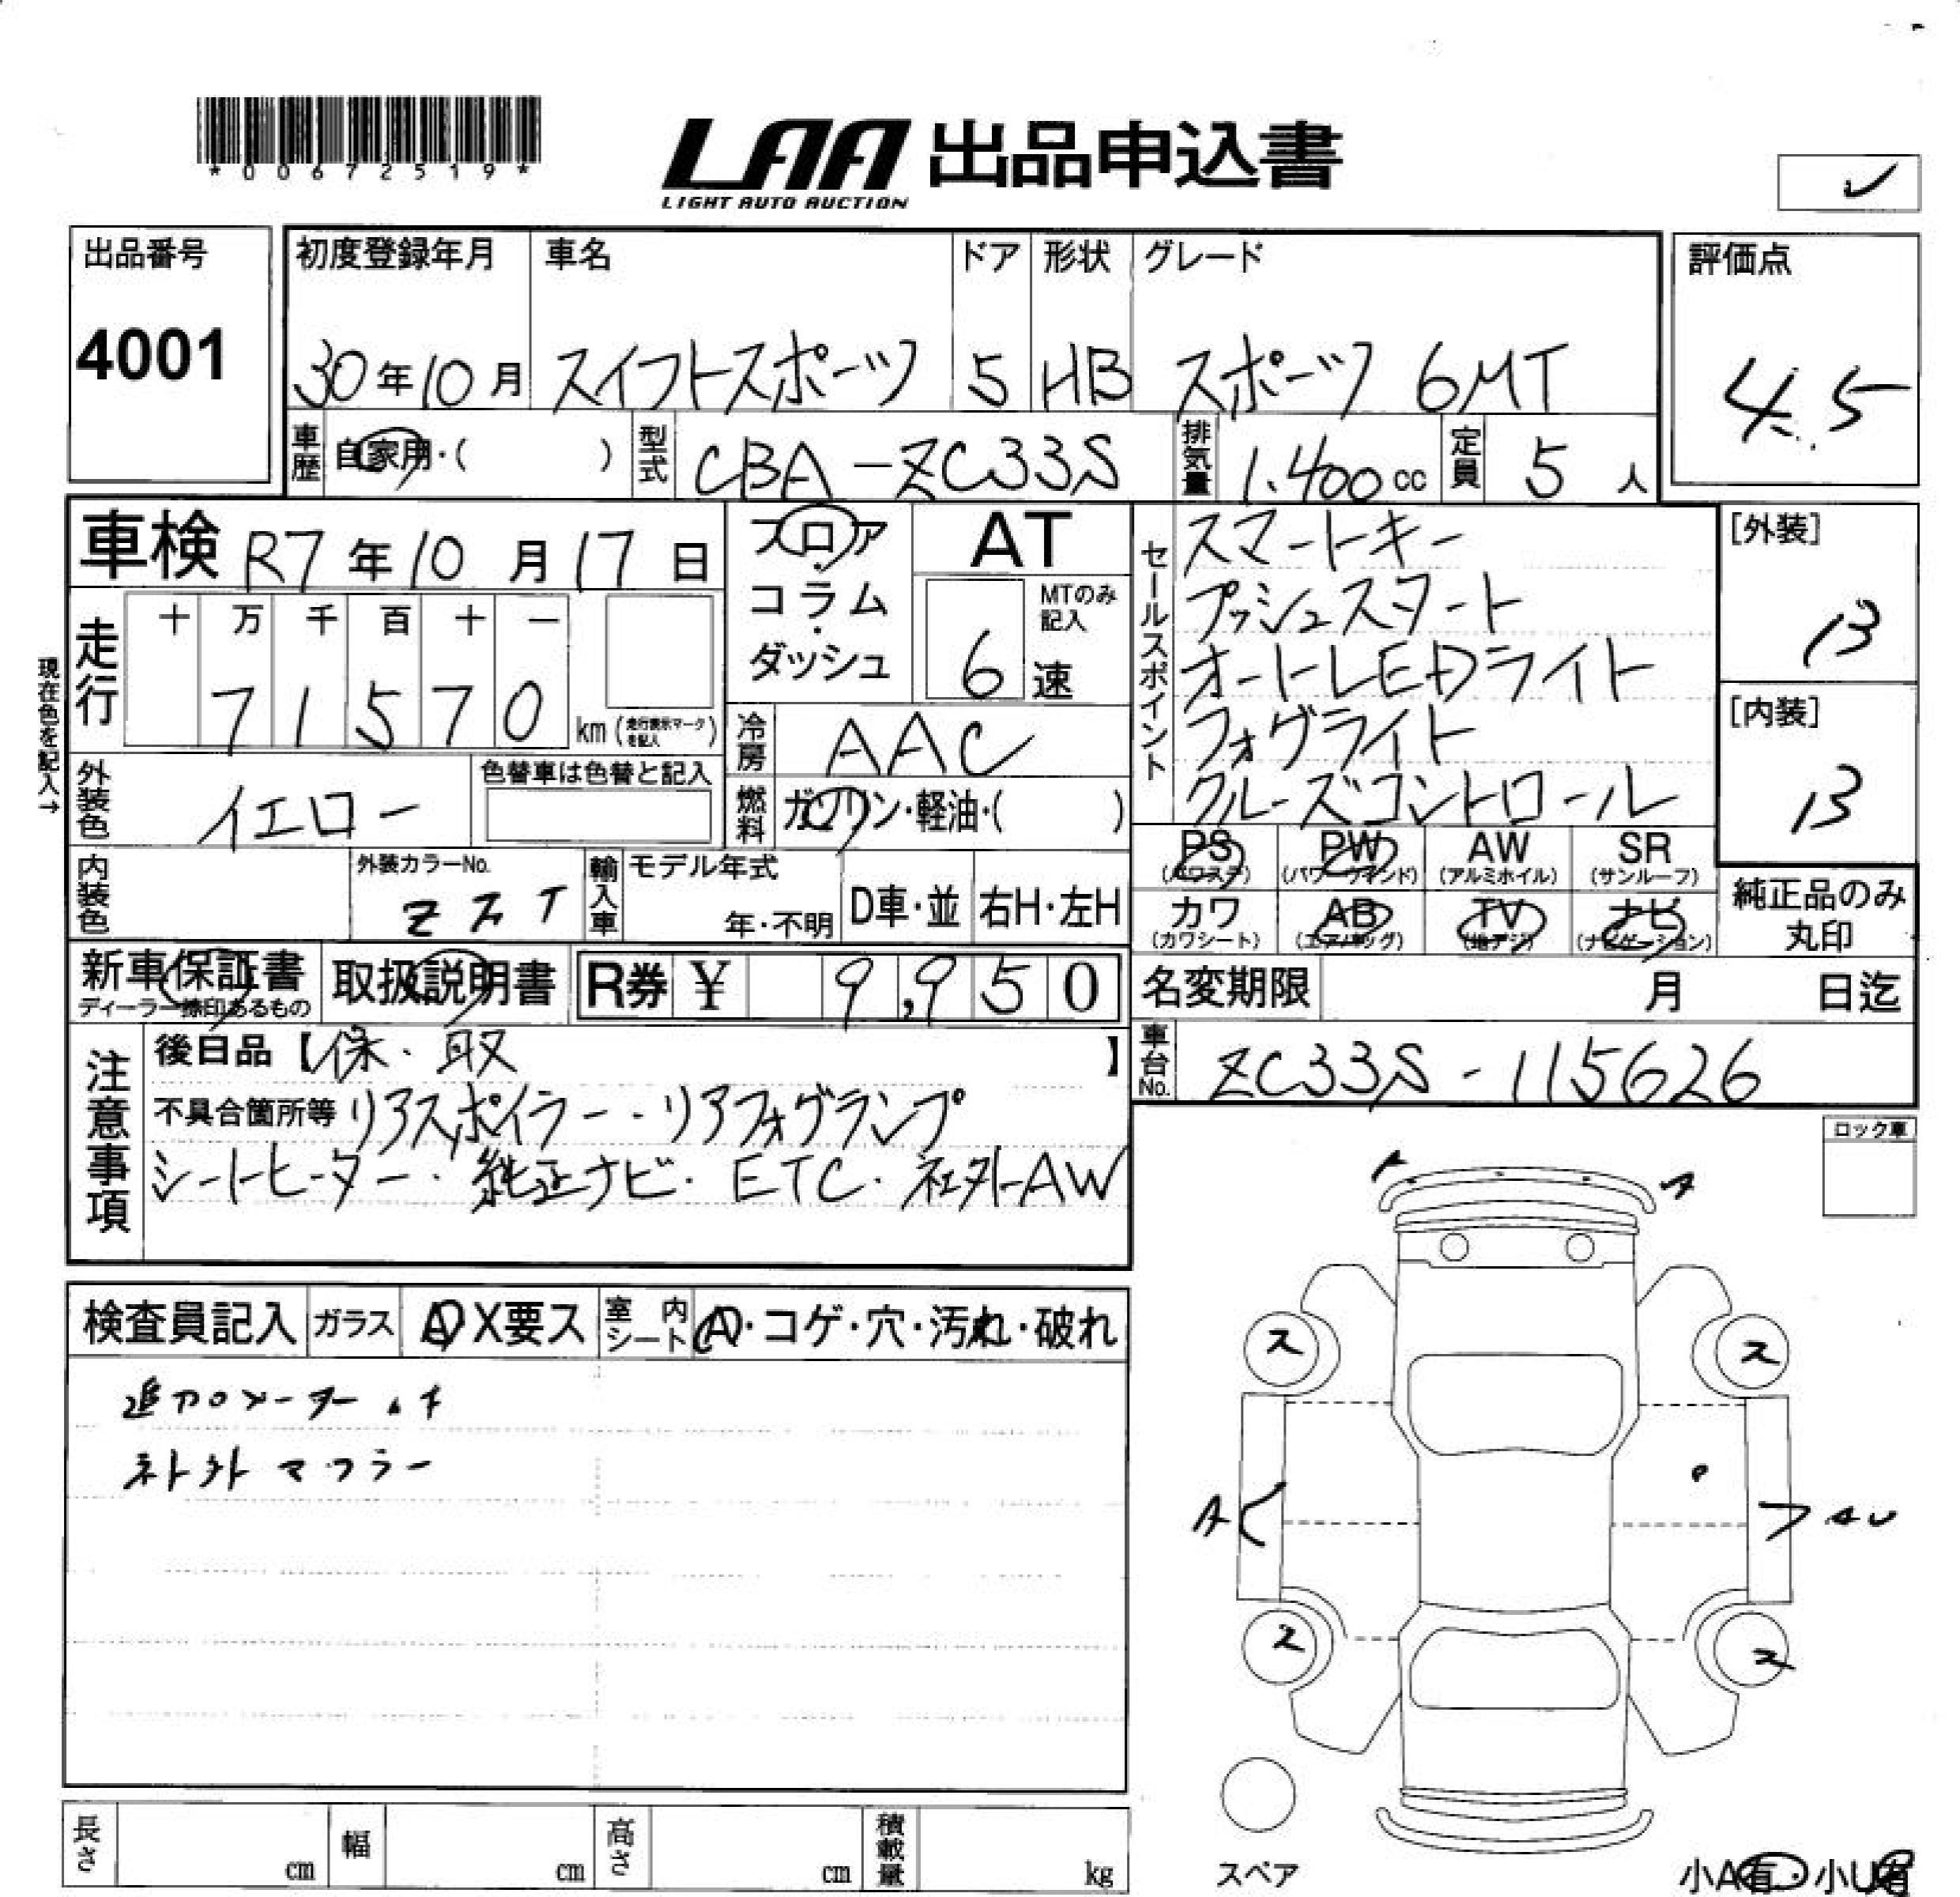 *00672519*
LAA 出品申込書
LIGHT AUTO AUCTION
レ
出品番号
4001
初度登録年月 車名 ドア 形状 グレード
30年10月 スイフトスポーツ 5 HB スポーツ 6MT
評価点
4.5
車歴 自家用・( ) 型式 CBA-ZC33S 排気量 1.400cc 定員 5人
車検 R7年10月17日
フロア・コラム・ダッシュ
AT
MTのみ記入
6速
セールスポイント
スマートキー
プッシュスタート
オートLEDライト
フォグライト
クルーズコントロール
[外装]
B
[内装]
B
現在色を記入→
走行 十 万 千 百 十 一
7 1 5 7 0 km(走行表示マークを記入)
冷房 AAC
外装色 イエロー 色替車は色替と記入
燃料 ガソリン・軽油・( )
PS(パワステ) PW(パワーウィンド) AW(アルミホイル) SR(サンルーフ)
カワ(カワシート) AB(エアバッグ) TV(地デジ) ナビ(ナビゲーション)
純正品のみ丸印
内装色 外装カラーNo. 輸入車 モデル年式 年・不明 D車・並 右H・左H
新車保証書 ディーラー捺印あるもの 取扱説明書 R券 ¥ 9,950
名変期限 月 日迄
車台No. ZC33S-115626
注意事項
後日品【保・取】
不具合箇所等 リアスポイラー・リアフォグランプ
シートヒーター・純正ナビ・ETC・社外AW
ロック車
A A
検査員記入 ガラス A X要ス 室内シート A・コゲ・穴・汚れ・破れ
追加メーター付
社外マフラー
ス ス
A AU
ス ス
スペア
小A有・小U有
長さ cm 幅 cm 高さ cm 積載量 kg